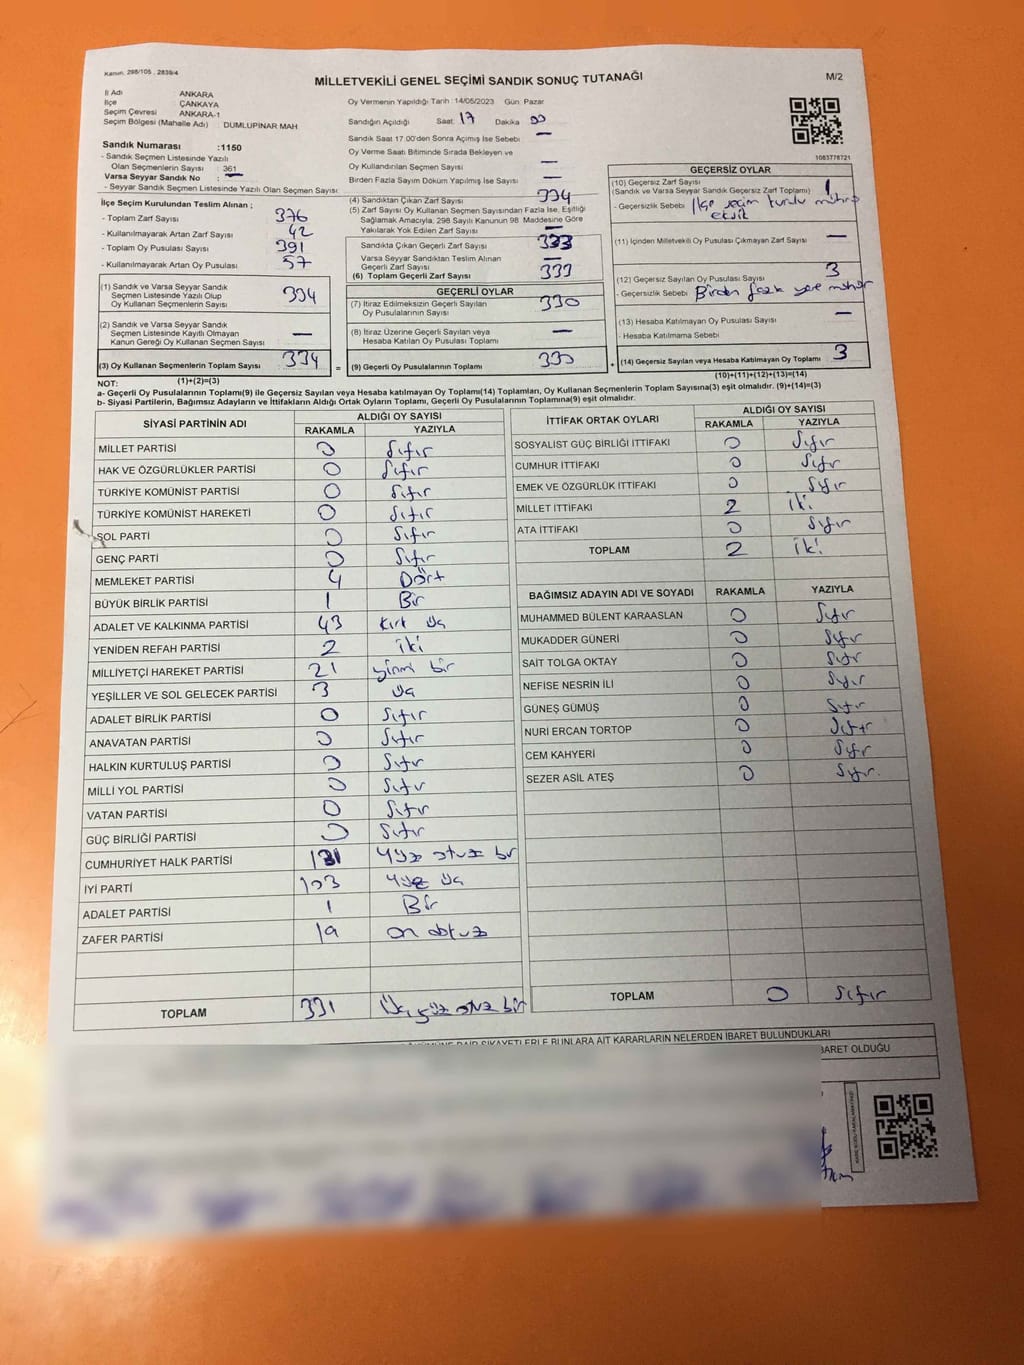 Kanun, 298/105 , 2839/4
MİLLETVEKİLİ GENEL SEÇİMİ SANDIK SONUÇ TUTANAĞI
M/2
İl Adı ANKARA
İlçe ÇANKAYA
Seçim Çevresi ANKARA-1
Seçim Bölgesi (Mahalle Adı) : DUMLUPINAR MAH
Sandık Numarası :1150
- Sandık Seçmen Listesinde Yazılı
Olan Seçmenlerin Sayısı : 361
Varsa Seyyar Sandık No : —
- Seyyar Sandık Seçmen Listesinde Yazılı Olan Seçmen Sayısı
Oy Vermenin Yapıldığı Tarih : 14/05/2023 Gün: Pazar
Sandığın Açıldığı Saat: 17 Dakika 00
Sandık Saat 17.00'den Sonra Açımış İse Sebebi —
Oy Verme Saati Bitiminde Sırada Bekleyen ve
Oy Kullandırılan Seçmen Sayısı —
Birden Fazla Sayım Döküm Yapılmış İse Sayısı —
1083778721
İlçe Seçim Kurulundan Teslim Alınan ;
- Toplam Zarf Sayısı 376
- Kullanılmayarak Artan Zarf Sayısı 42
- Toplam Oy Pusulası Sayısı 391
- Kullanılmayarak Artan Oy Pusulası 57
(1) Sandık ve Varsa Seyyar Sandık
Seçmen Listesinde Yazılı Olup
Oy Kullanan Seçmenlerin Sayısı 334
(2) Sandık ve Varsa Seyyar Sandık
Seçmen Listesinde Kayıtlı Olmayan
Kanun Gereği Oy Kullanan Seçmen Sayısı —
(3) Oy Kullanan Seçmenlerin Toplam Sayısı 334
(1)+(2)=(3)
(4) Sandıktan Çıkan Zarf Sayısı 334
(5) Zarf Sayısı Oy Kullanan Seçmen Sayısından Fazla İse, Eşitliği
Sağlamak Amacıyla, 298 Sayılı Kanunun 98 Maddesine Göre
Yakılarak Yok Edilen Zarf Sayısı —
Sandıkta Çıkan Geçerli Zarf Sayısı 333
Varsa Seyyar Sandıktan Teslim Alınan
Geçerli Zarf Sayısı —
(6) Toplam Geçerli Zarf Sayısı 333
GEÇERLİ OYLAR
(7) İtiraz Edilmeksizin Geçerli Sayılan
Oy Pusulalarının Sayısı 330
(8) İtiraz Üzerine Geçerli Sayılan veya
Hesaba Katılan Oy Pusulası Toplamı —
= (9) Geçerli Oy Pusulalarının Toplamı 330
GEÇERSİZ OYLAR
(10) Geçersiz Zarf Sayısı 1
(Sandık ve Varsa Seyyar Sandık Geçersiz Zarf Toplamı)
- Geçersizlik Sebebi İlçe seçim kurulu mührü
eksik
(11) İçinden Milletvekili Oy Pusulası Çıkmayan Zarf Sayısı —
(12) Geçersiz Sayılan Oy Pusulası Sayısı 3
- Geçersizlik Sebebi Birden fazla yere mühür
(13) Hesaba Katılmayan Oy Pusulası Sayısı —
- Hesaba Katılmama Sebebi
+ (14) Geçersiz Sayılan veya Hesaba Katılmayan Oy Toplamı 3
(10)+(11)+(12)+(13)=(14)
NOT:
a- Geçerli Oy Pusulalarının Toplamı(9) ile Geçersiz Sayılan veya Hesaba katılmayan Oy Toplamı(14) Toplamları, Oy Kullanan Seçmenlerin Toplam Sayısına(3) eşit olmalıdır. (9)+(14)=(3)
b- Siyasi Partilerin, Bağımsız Adayların ve İttifakların Aldığı Ortak Oyların Toplamı, Geçerli Oy Pusulalarının Toplamına(9) eşit olmalıdır.
SİYASİ PARTİNİN ADI ALDIĞI OY SAYISI
RAKAMLA YAZIYLA
MİLLET PARTİSİ 0 Sıfır
HAK VE ÖZGÜRLÜKLER PARTİSİ 0 Sıfır
TÜRKİYE KOMÜNİST PARTİSİ 0 Sıfır
TÜRKİYE KOMÜNİST HAREKETİ 0 Sıfır
SOL PARTİ 0 Sıfır
GENÇ PARTİ 0 Sıfır
MEMLEKET PARTİSİ 4 Dört
BÜYÜK BİRLİK PARTİSİ 1 Bir
ADALET VE KALKINMA PARTİSİ 43 kırk üç
YENİDEN REFAH PARTİSİ 2 iki
MİLLİYETÇİ HAREKET PARTİSİ 21 yirmi bir
YEŞİLLER VE SOL GELECEK PARTİSİ 3 üç
ADALET BİRLİK PARTİSİ 0 Sıfır
ANAVATAN PARTİSİ 0 Sıfır
HALKIN KURTULUŞ PARTİSİ 0 Sıfır
MİLLİ YOL PARTİSİ 0 Sıfır
VATAN PARTİSİ 0 Sıfır
GÜÇ BİRLİĞİ PARTİSİ 0 Sıfır
CUMHURİYET HALK PARTİSİ 131 Yüz otuz bir
İYİ PARTİ 103 Yüz üç
ADALET PARTİSİ 1 Bir
ZAFER PARTİSİ 19 on dokuz
TOPLAM 331 Üç yüz otuz bir
İTTİFAK ORTAK OYLARI ALDIĞI OY SAYISI
RAKAMLA YAZIYLA
SOSYALİST GÜÇ BİRLİĞİ İTTİFAKI 0 Sıfır
CUMHUR İTTİFAKI 0 Sıfır
EMEK VE ÖZGÜRLÜK İTTİFAKI 0 Sıfır
MİLLET İTTİFAKI 2 İki
ATA İTTİFAKI 0 Sıfır
TOPLAM 2 İki
BAĞIMSIZ ADAYIN ADI VE SOYADI RAKAMLA YAZIYLA
MUHAMMED BÜLENT KARAASLAN 0 Sıfır
MUKADDER GÜNERİ 0 Sıfır
SAİT TOLGA OKTAY 0 Sıfır
NEFİSE NESRİN İLİ 0 Sıfır
GÜNEŞ GÜMÜŞ 0 Sıfır
NURİ ERCAN TORTOP 0 Sıfır
CEM KAHYERİ 0 Sıfır
SEZER ASİL ATEŞ 0 Sıfır
TOPLAM 0 Sıfır
ŞİKAYETLERLE BUNLARA AİT KARARLARIN NELERDEN İBARET BULUNDUKLARI
İBARET OLDUĞU